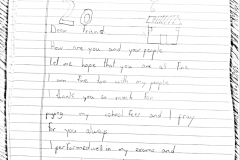 26
Dear Friend
How are you and your people
Let me hope that you are all fine
I am fine too with my people
I thank you so much for
paying my school fees and I pray
for you always
I performed well in my exams and